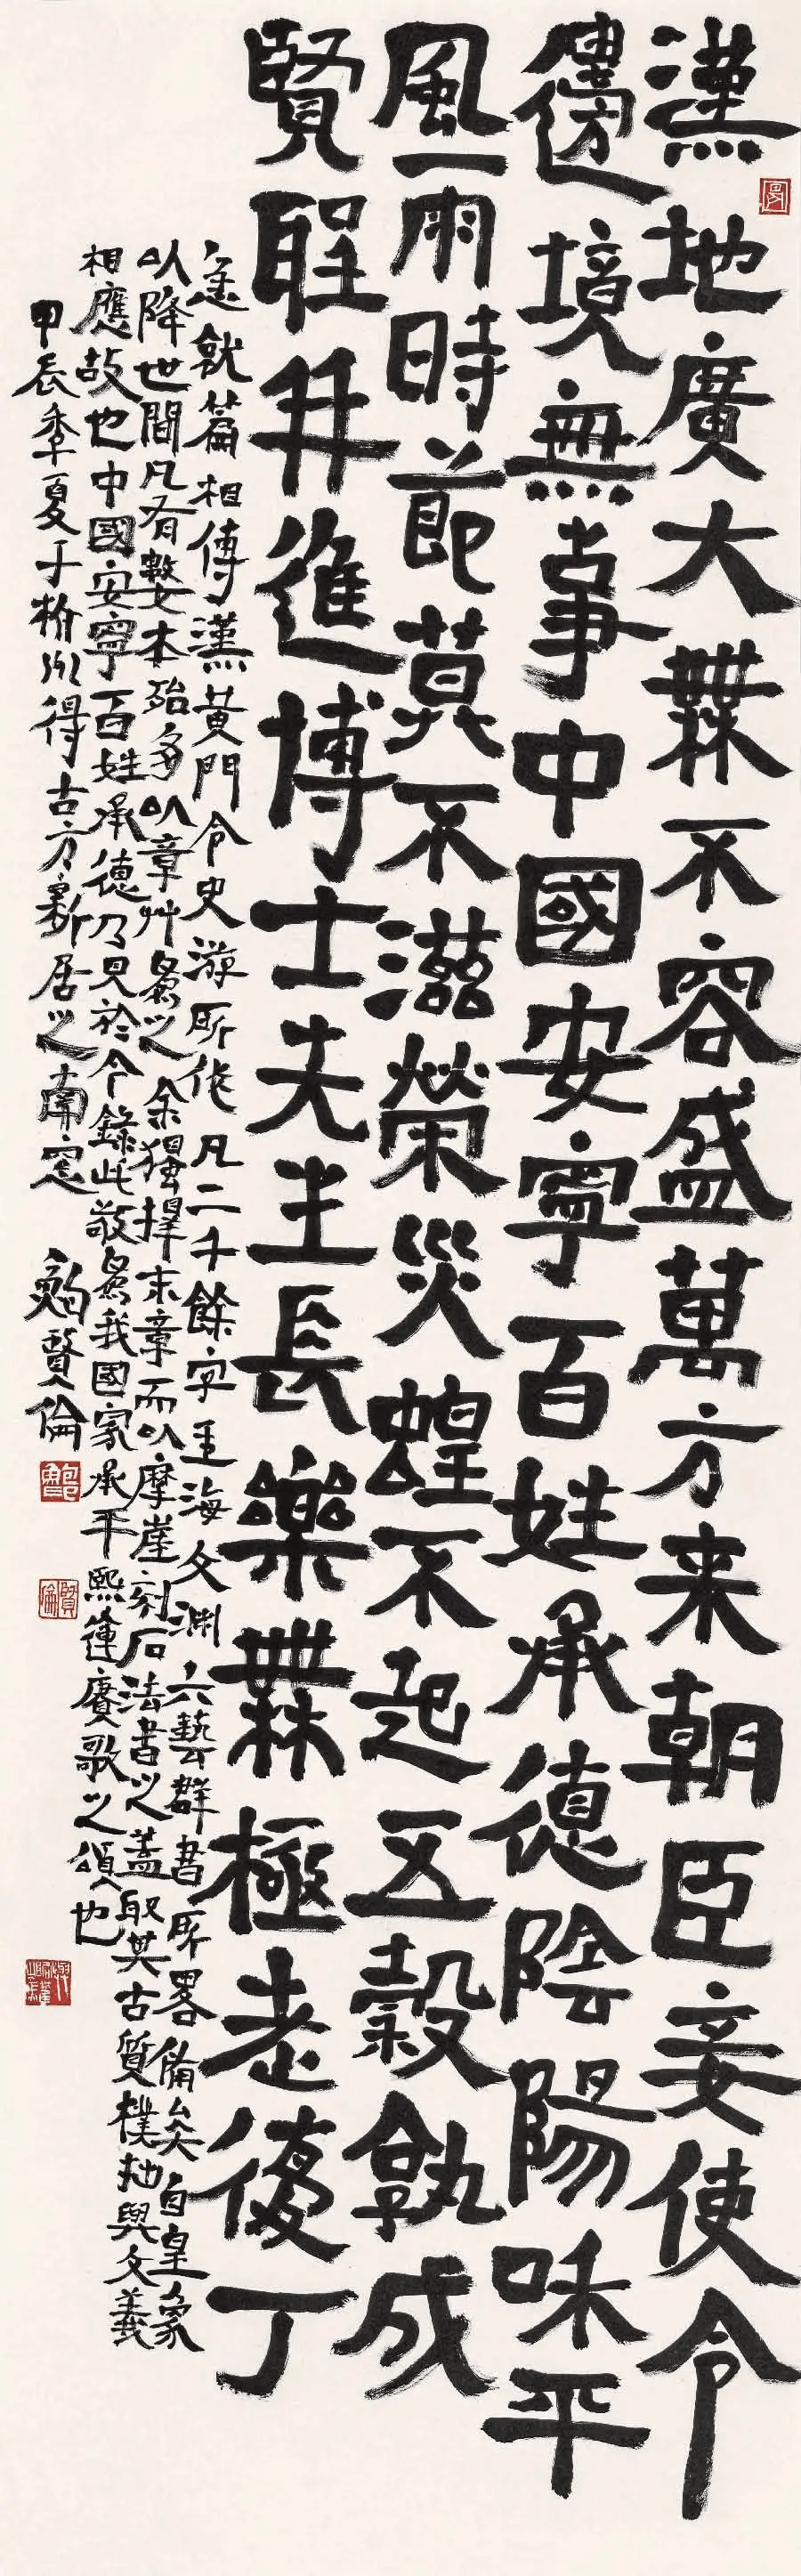 漢地廣大無不容盛萬方来朝臣妾使令
邊境無事中國安寧百姓承德陰陽和平
風雨時節莫不滋榮災蝗不起五穀孰成
賢聖并進博士先生長樂無極老復丁
急就篇相傳漢黄門令史游所作凡二千餘字玉海文淵六藝群書所畧備矣自皇象
以降世間凡有數本殆多以章艸為之余獨擇末章而以摩崖刻石法書之蓋取其古質樸拙與文義
相應故也中國安寧百姓承德乃見於今錄此敬為我國家承平熙運賡歌之頌也
甲辰季夏于榆州得古方新居之南窓 鮑賢倫
鮑
賢倫